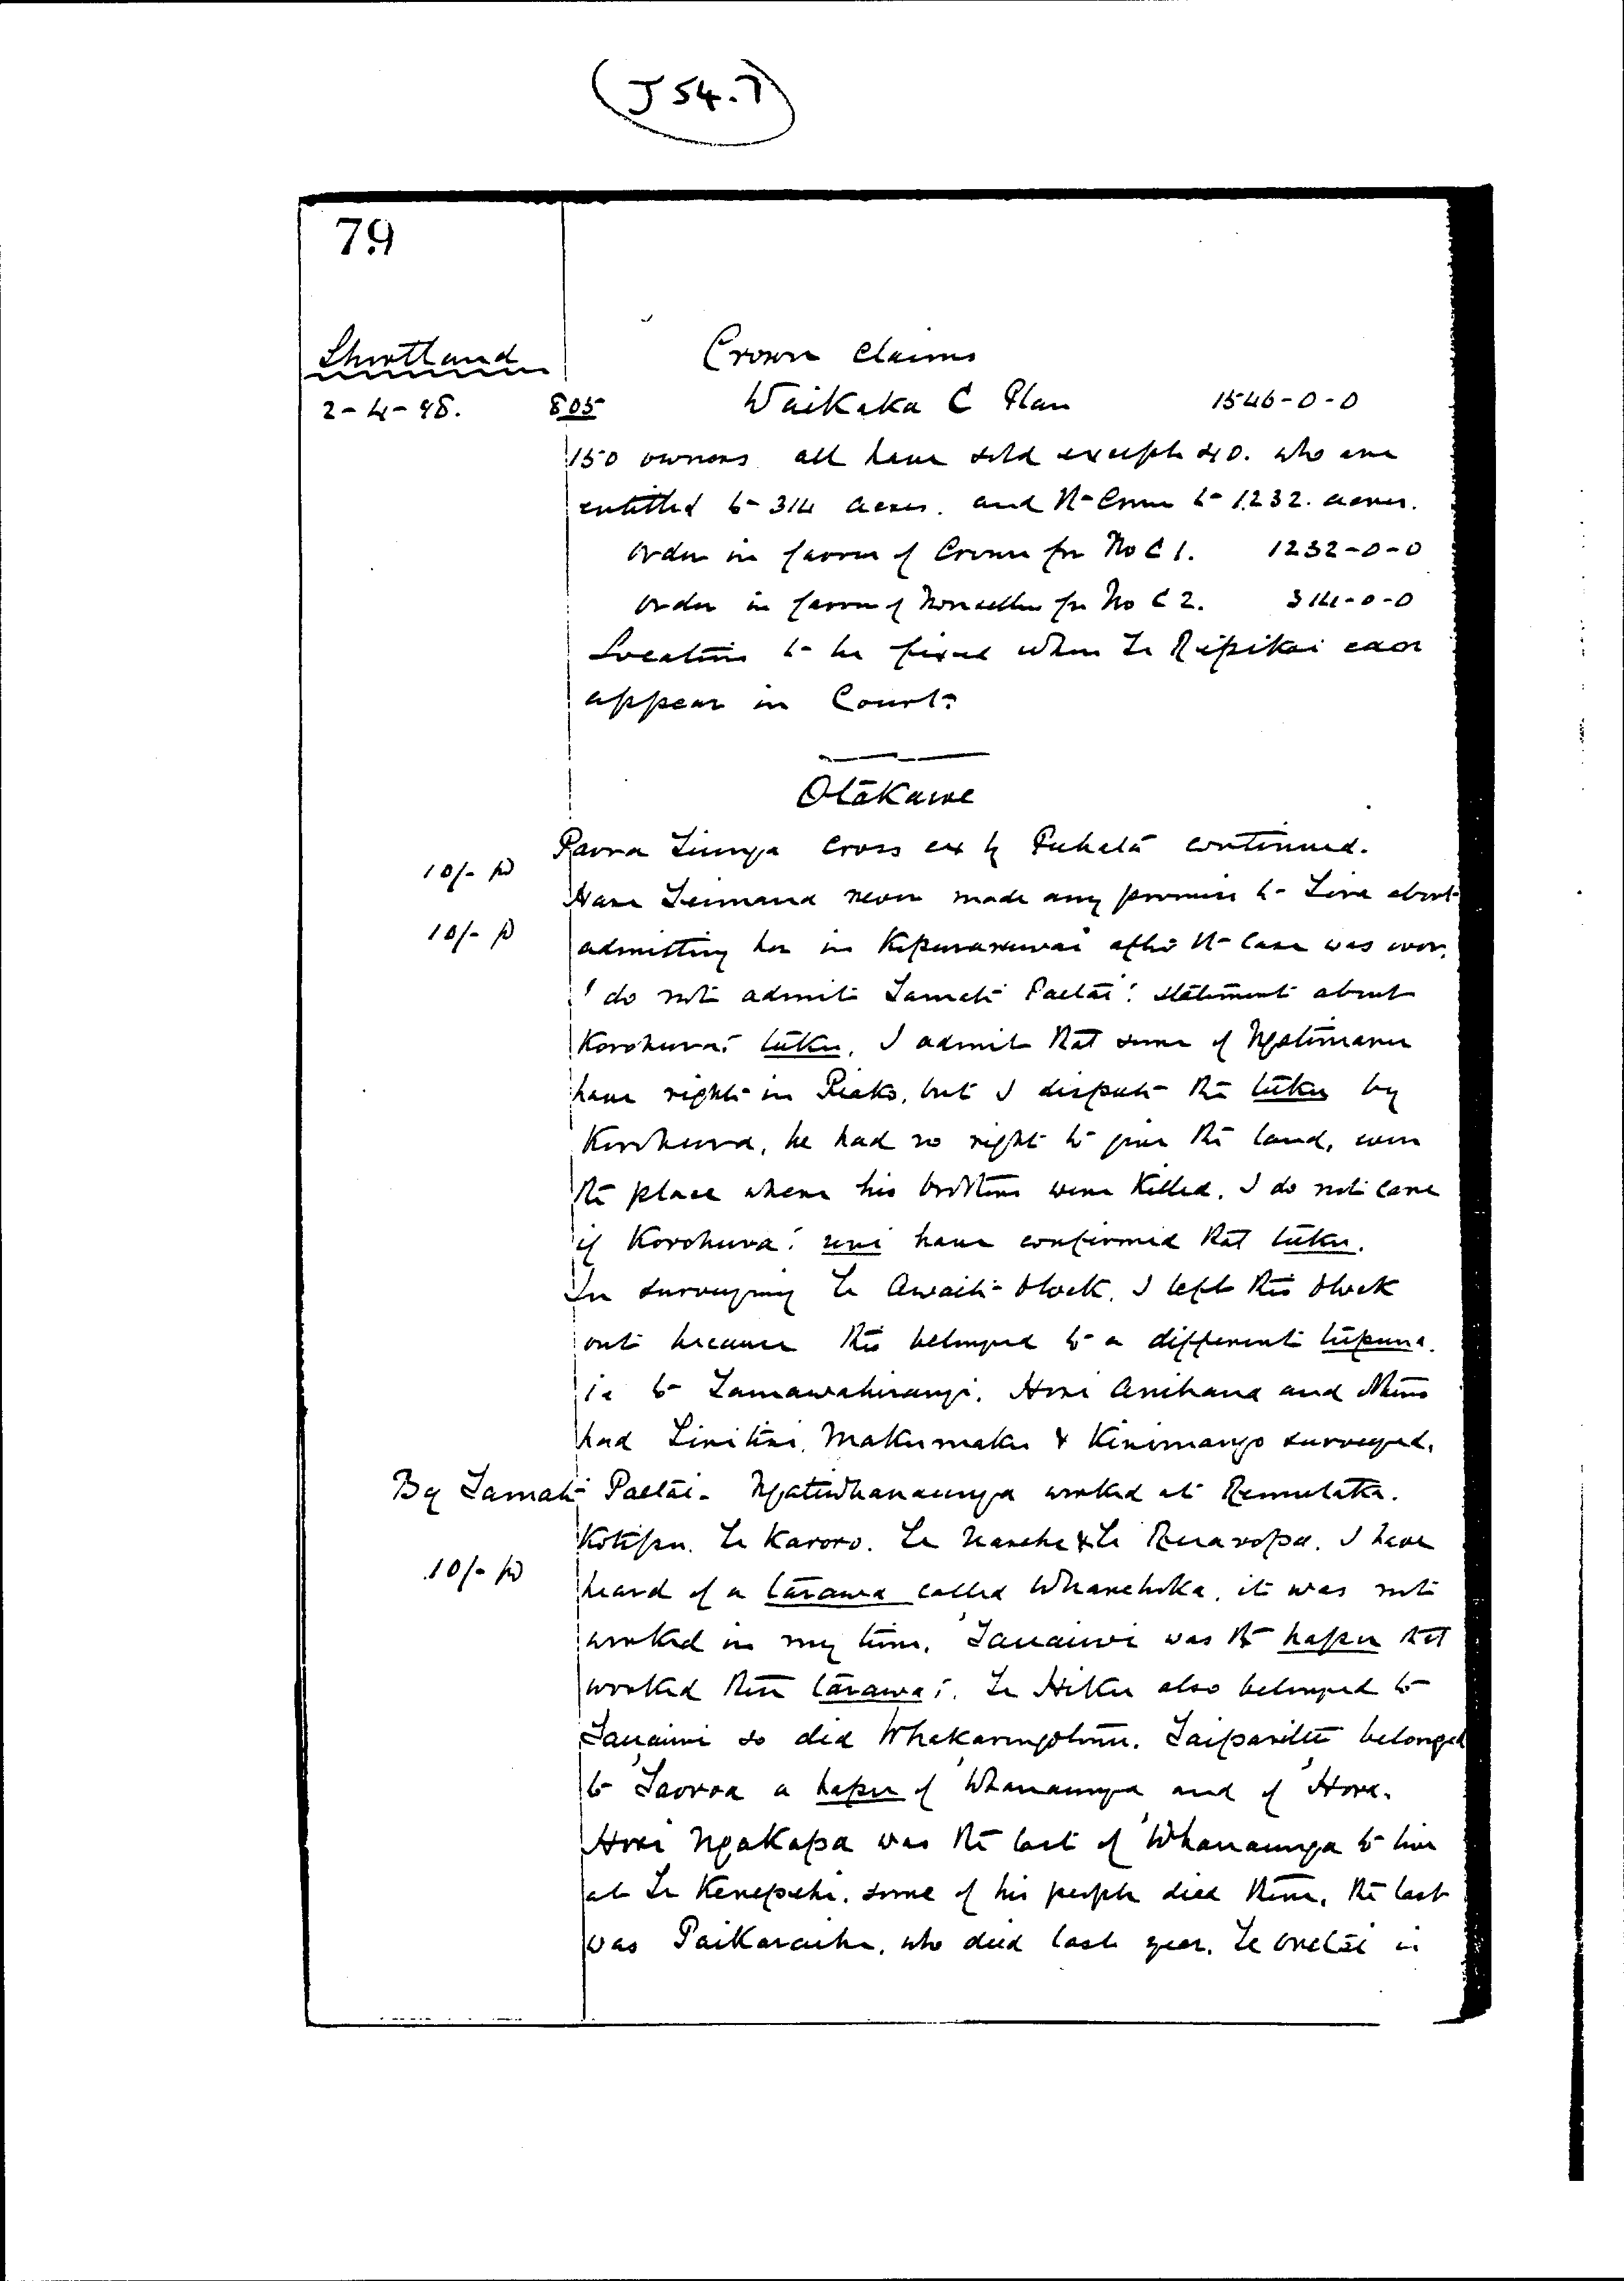 (J 54.7)
79
Shortland
Crown Claims
2-4-98. 805 Waikaka C Plan 1546-0-0
150 owners all have sold except 40. who are
entitled to 314 acres. and the Crown to 1232. acres.
Order in favour of Crown for No C 1. 1232-0-0
Order in favour of Nonsellers for No C 2. 314-0-0
Location to be fixed when Te Ripikai case
appear in Court.
Otakawe
cross ex by Puhata continued.
10/- pd
never made any promise to about
10/- pd
admitting her in after the case was over.
I do not admit Tamati Paetai's statement about
Korohura's tuku, I admit that some of Ngatimaru
have right in Piako, but I dispute the tuku by
Korohura, he had no right to give the land, even
the place where his brothers were killed. I do not care
if Korohura's uri have confirmed that tuku.
In surveying Te Awaiti block, I left this block
out because this belonged to a different tupuna.
ie to Tamawahirangi. Hori Anihana and
had Tiritiri, Makumaku & Kinimango surveyed.
By Tamati Paetai. Ngatiwhanaunga worked at
Kotipu. Te Karoro. Te & Te Ruaropa. I have
10/- pd
heard of a tarawa called Wharehoka, it was not
worked in my time, Tauaiwi was the hapu that
worked these tarawas. Te Hiku also belonged to
Tauaiwi so did belonged
to Taoroa a hapu of Whanaunga and of Hora.
Hori Ngakapa was the last of Whanaunga to live
at Te Kerepehi. some of his people died there, the last
was who died last year. is